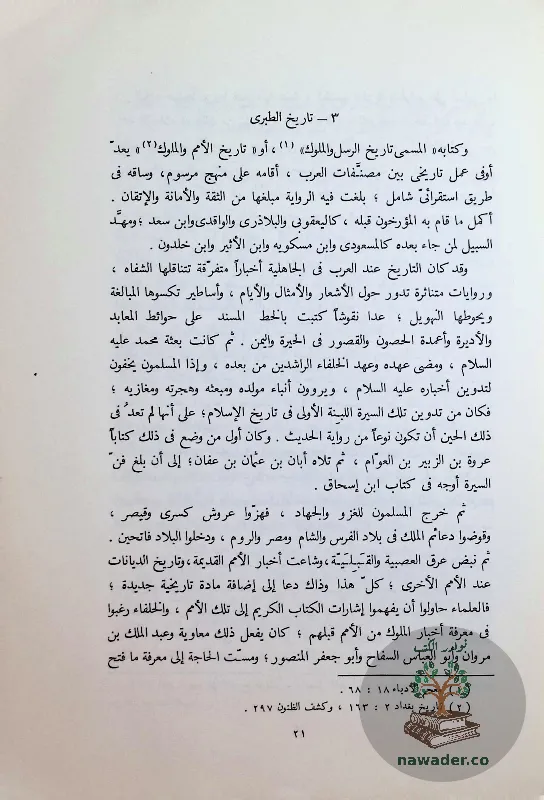 ٣ – تاريخ الطبرى
وكتابه « المسمى تاريخ الرسل والملوك » (١) ، أو « تاريخ الأمم والملوك(٢) » يعدّ
أوفى عمل تاريخى بين مصنَّفات العرب ، أقامه على منهج مرسوم، وساقه فى
طريق استقرائىّ شامل ؛ بلغت فيه الرواية مبلغها من الثقة والأمانة والإتقان .
أكمل ما قام به المؤرخون قبله ، كاليعقوبى والبلاذرى والواقدى وابن سعد ؛ ومهَّد
السبيل لمن جاء بعده كالمسعودى وابن مسكويه وابن الأثير وابن خلدون .
وقد كان التاريخ عند العرب فى الجاهلية أخباراً متفرّقة تتناقلها الشفاه ،
وروايات متناثرة تدور حول الأشعار والأمثال والأيام ، وأساطير تكسوها المبالغة
ويحوطها التهويل ؛ عدا نقوشاً كتبت بالخط المسند على حوائط المعابد
والأديرة وأعمدة الحصون والقصور فى الحيرة واليمن . ثم كانت بعثة محمد عليه
السلام ، ومضى عهده وعهد الخلفاء الراشدين من بعده ، وإذا المسلمون يخفون
لتدوين أخباره عليه السلام ، ويروون أنباء مولده ومبعثه وهجرته ومغازيه ؛
فكان من تدوين تلك السيرة اللبنة الأولى فى تاريخ الإسلام؛ على أنها لم تعدُ فى
ذلك الحين أن تكون نوعاً من رواية الحديث . وكان أول من وضع فى ذلك كتاباً
عروة بن الزبير بن العوّام ، ثم تلاه أبان بن عثمان بن عفان؛ إلى أن بلغ فنّ
السيرة أوجه فى كتاب ابن إسحاق .
ثم خرج المسلمون للغزو والجهاد ، فهزّوا عروش كسرى وقيصر ،
وقوضوا دعائم الملك فى بلاد الفرس والشام ومصر والروم ، ودخلوا البلاد فاتحين .
ثم نبض عرق العصبية والقَبَلِيَّة، وشاعت أخبار الأمم القديمة، وتاريخ الديانات
عند الأمم الأخرى ؛ كلّ هذا وذاك دعا إلى إضافة مادة تاريخية جديدة ؛
فالعلماء حاولوا أن يفهموا إشارات الكتاب الكريم إلى تلك الأمم ، والخلفاء رغبوا
فى معرفة أخبار الملوك من الأمم قبلهم ؛ كان يفعل ذلك معاوية وعبد الملك بن
مروان وأبو العباس السفاح وأبو جعفر المنصور؛ ومست الحاجة إلى معرفة ما فتح
الأدباء ١٨ : ٦٨ .
(٢) تاريخ بغداد ٢ : ١٦٣ ، وكشف الظنون ٢٩٧ .
٢١
نوادر الكتب
nawader.co